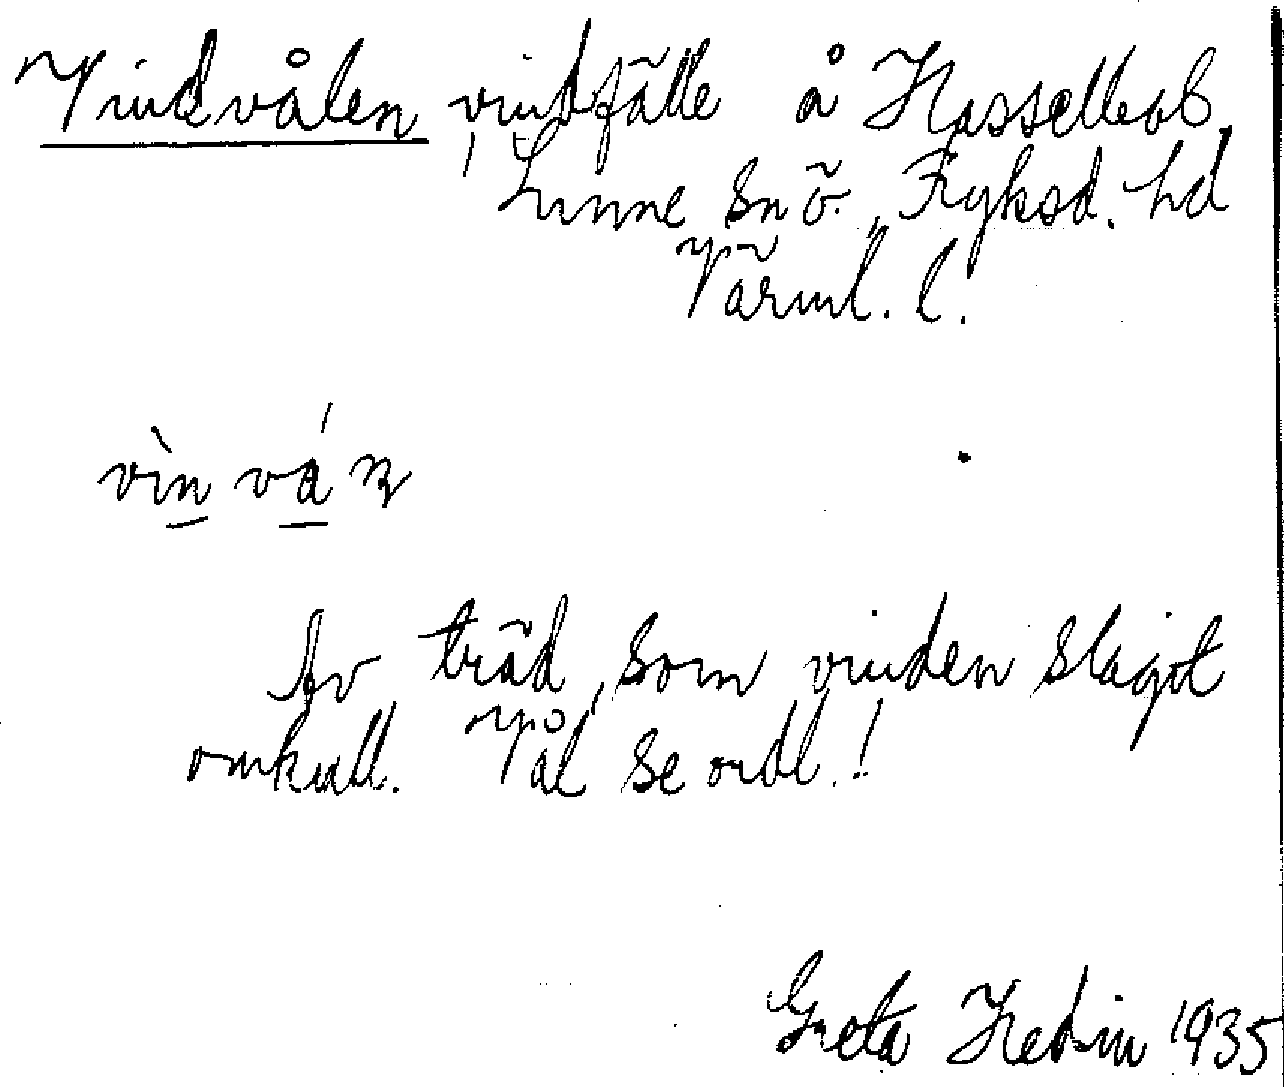 Vindvålen, vindfälle å Hassellbol,
Lunne sn ö., Fryksd. hd
Värml. l.
vìn vá
Av träd, som vinden slagit
omkull. Vål se ordl.!
Greta Hedin 1935